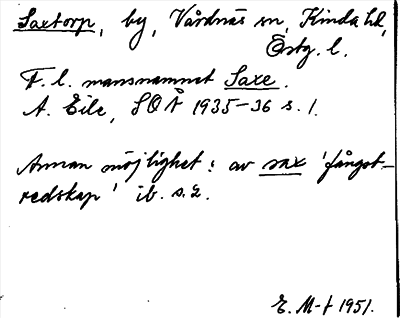 Saxtorp, by, Vårdnäs sn, Kinda hd,
Östg. l.
F. l. mansnamnet Saxe.
A. Eile, SOÅ 1935-36 s. 1.
Annan möjlighet: av sax 'fångst-
redskap' ib. s. 2.
E. M-t 1951.